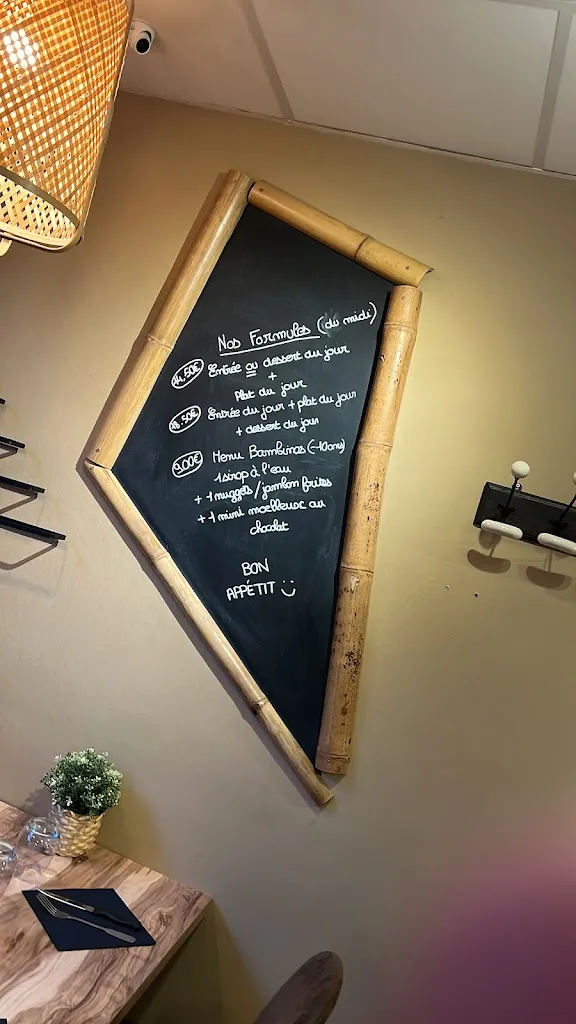 Nos Formules (du midi)
14.50€ Entrée ou dessert du jour
+
Plat du jour
18.50€ Entrée du jour + plat du jour
+ dessert du jour
9,00€ Menu Bambinos (-10ans)
1 sirop à l'eau
+ 1 nuggets/jambon frites
+ 1 mini moelleux au
chocolat
BON
APPÉTIT